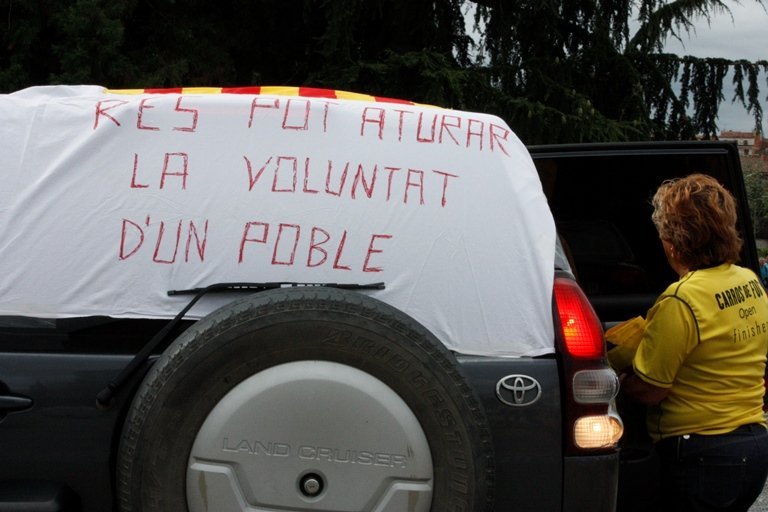 RES POT ATURAR
LA VOLUNTAT
D'UN POBLE
LAND CRUISER
CARROS DE FOC
Open
finisher